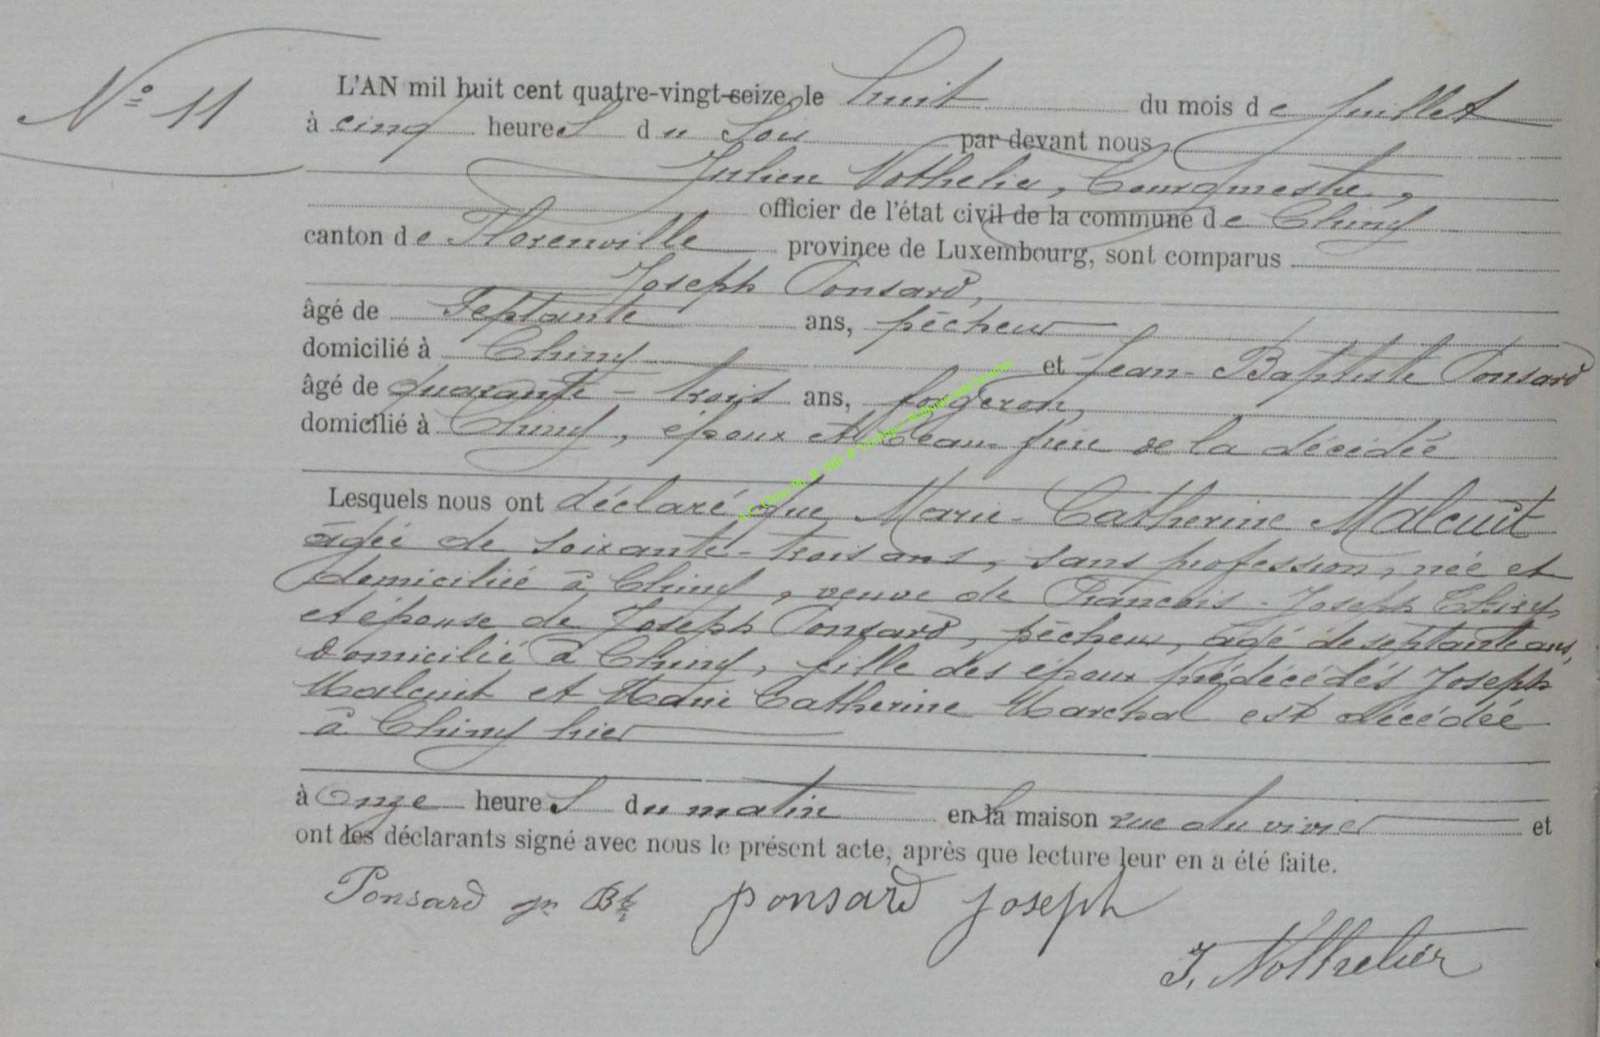 N° 11
L'AN mil huit cent quatre-vingt-seize, le huit du mois de Juillet
à cinq heures du Soir par devant nous,
Julien Nothelier, bourgmestre,
officier de l'état civil de la commune de Chiny
canton de Florenville province de Luxembourg, sont comparus
Joseph Ponsard,
âgé de Septante ans, pêcheur
domicilié à Chiny et Jean-Baptiste Ponsard
âgé de quarante-trois ans, forgeron,
domicilié à Chiny, époux et beau-frère de la décédée
Lesquels nous ont déclaré que Marie-Catherine Malcuit
âgée de soixante-trois ans, sans profession, née et
domiciliée à Chiny, veuve de François-Joseph Thiry
et épouse de Joseph Ponsard, pêcheur, âgé de septante ans,
domicilié à Chiny, fille des époux prédécédés Joseph
Malcuit et Marie Catherine Marchal est décédée
à Chiny hier
à Onze heures du matin en la maison rue du vivier et
ont les déclarants signé avec nous le présent acte, après que lecture leur en a été faite.
Ponsard jn Bte ponsard joseph
J. Nothelier